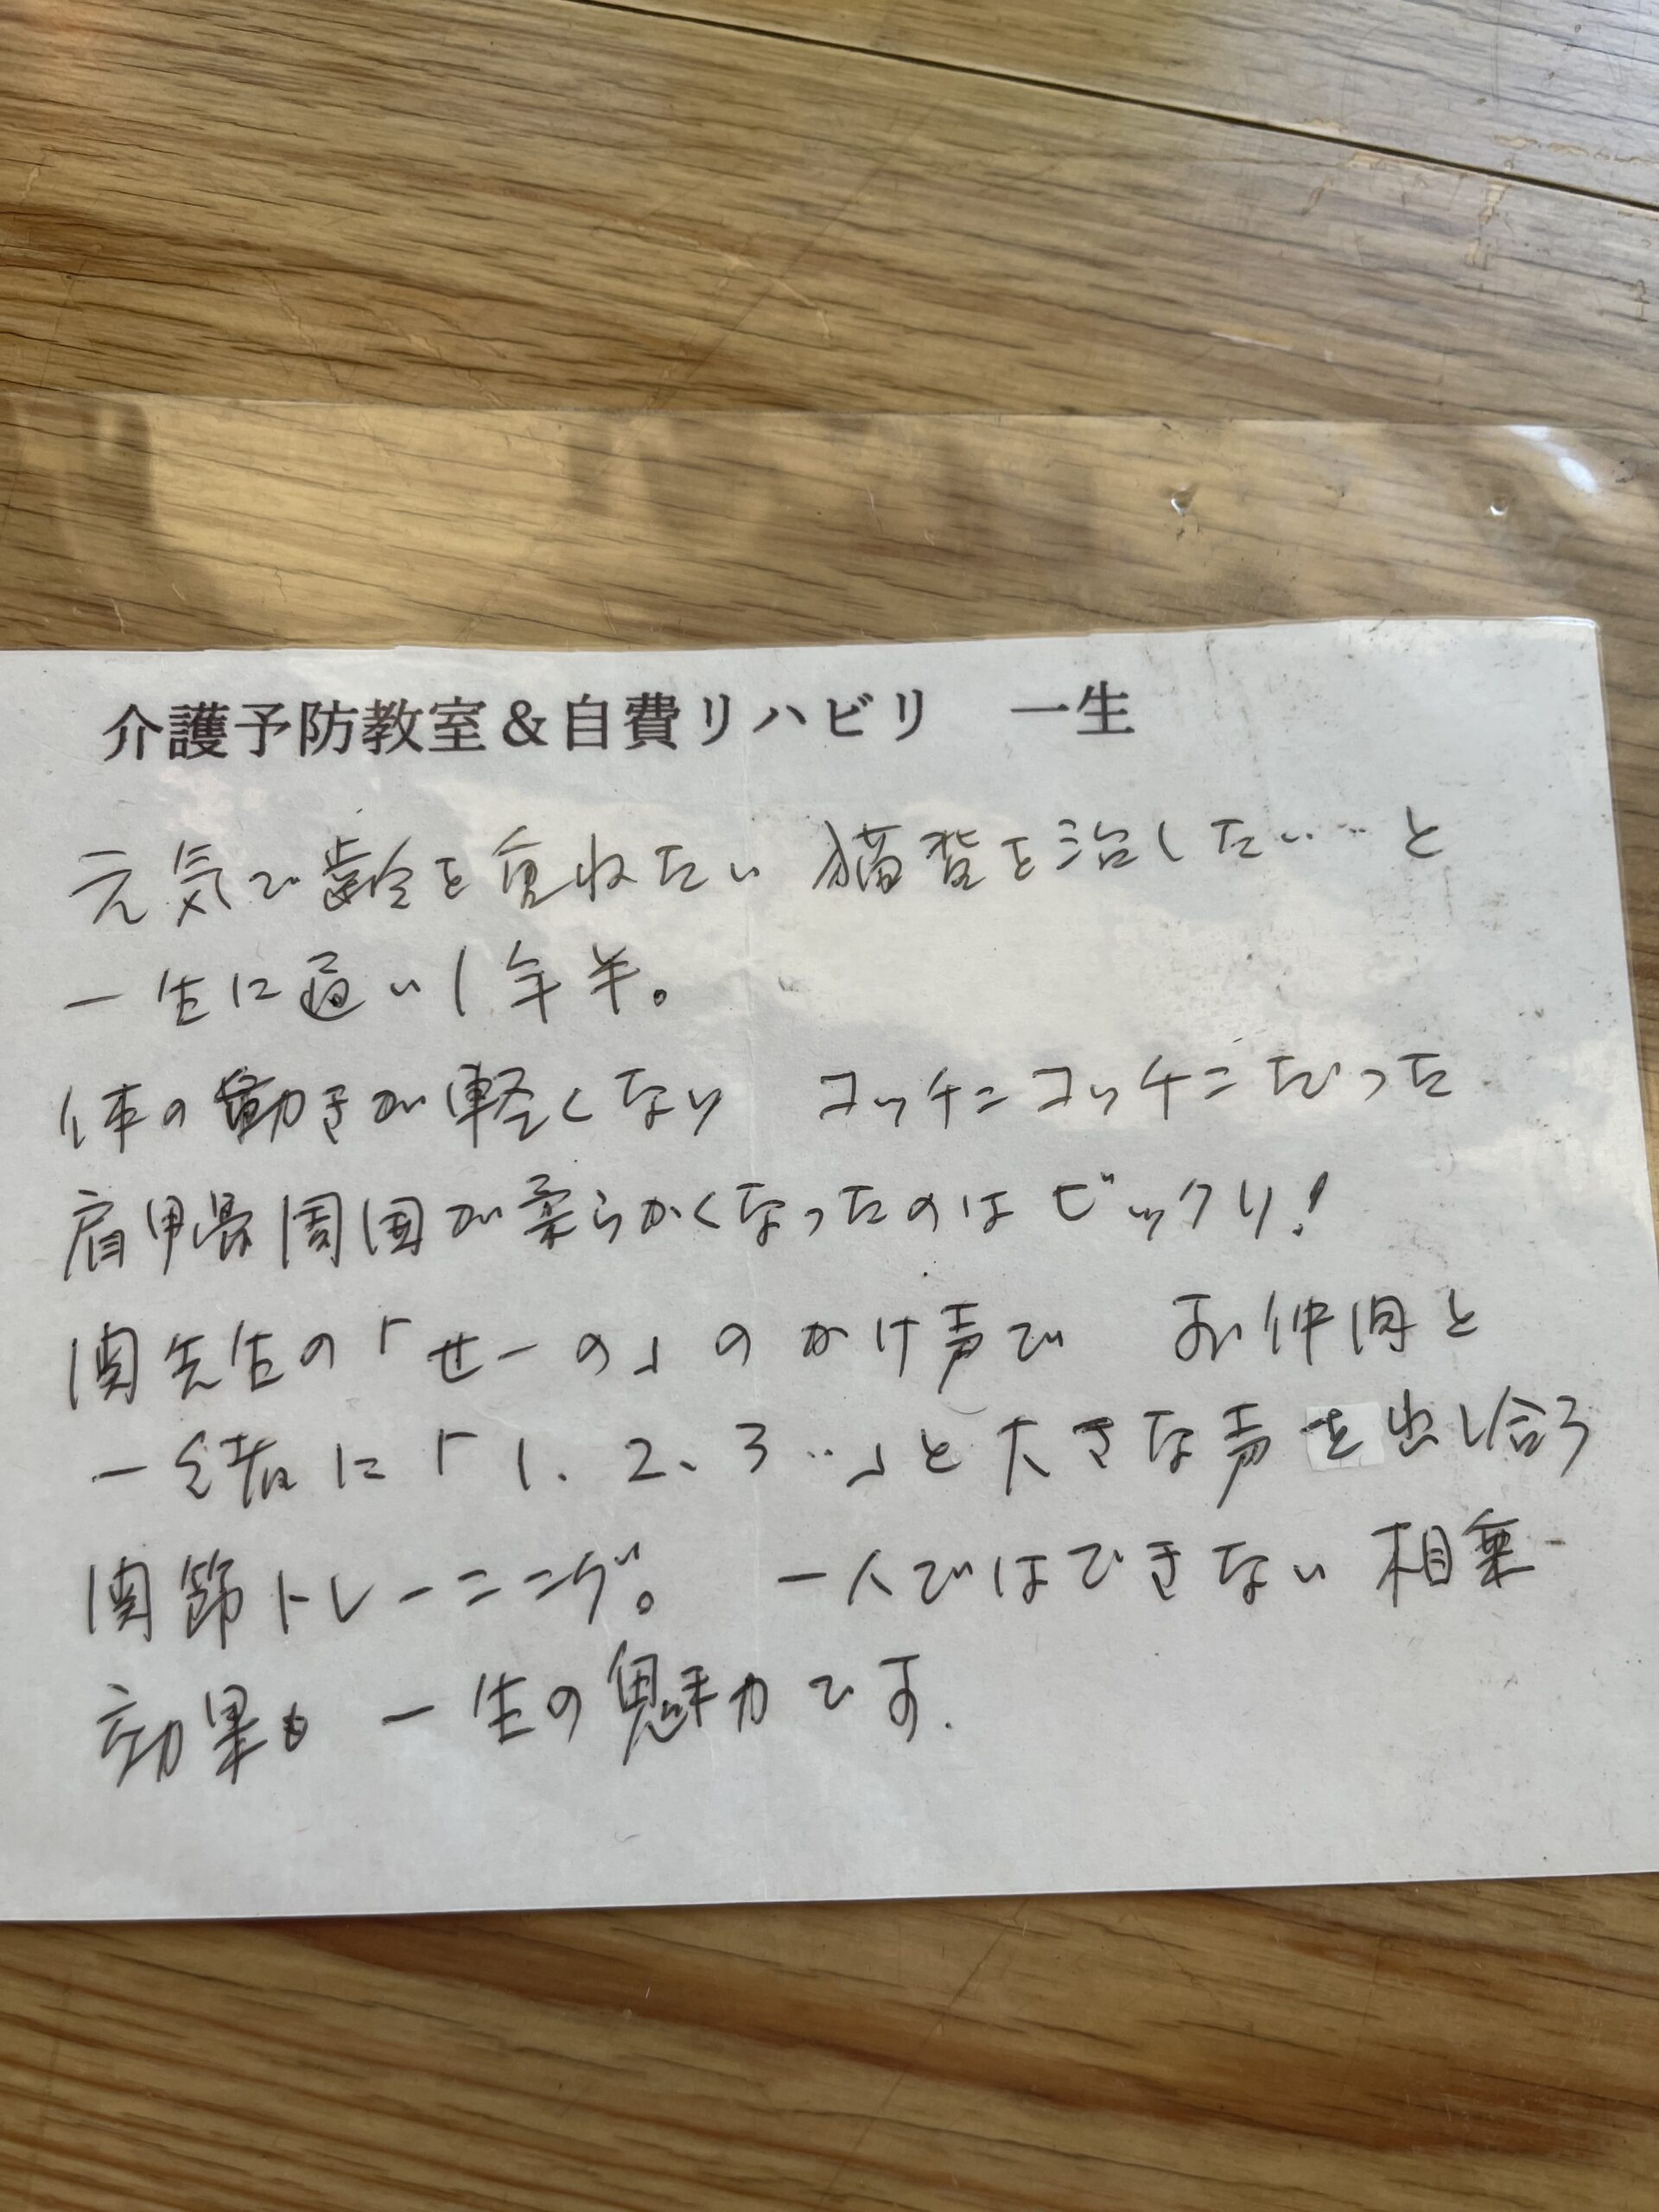 介護予防教室＆自費リハビリ　一生
元気で齢を重ねたい 猫背を治したい…と
一生に通い1年半。
体の動きが軽くなり　コッチンコッチンだった
肩甲骨周囲が柔らかくなったのはビックリ！
関先生の「せーの」のかけ声で　お仲間と
一緒に「1、2、3…」と大きな声を出し合う
関節トレーニング。　一人ではできない相乗
効果も 一生の魅力です.